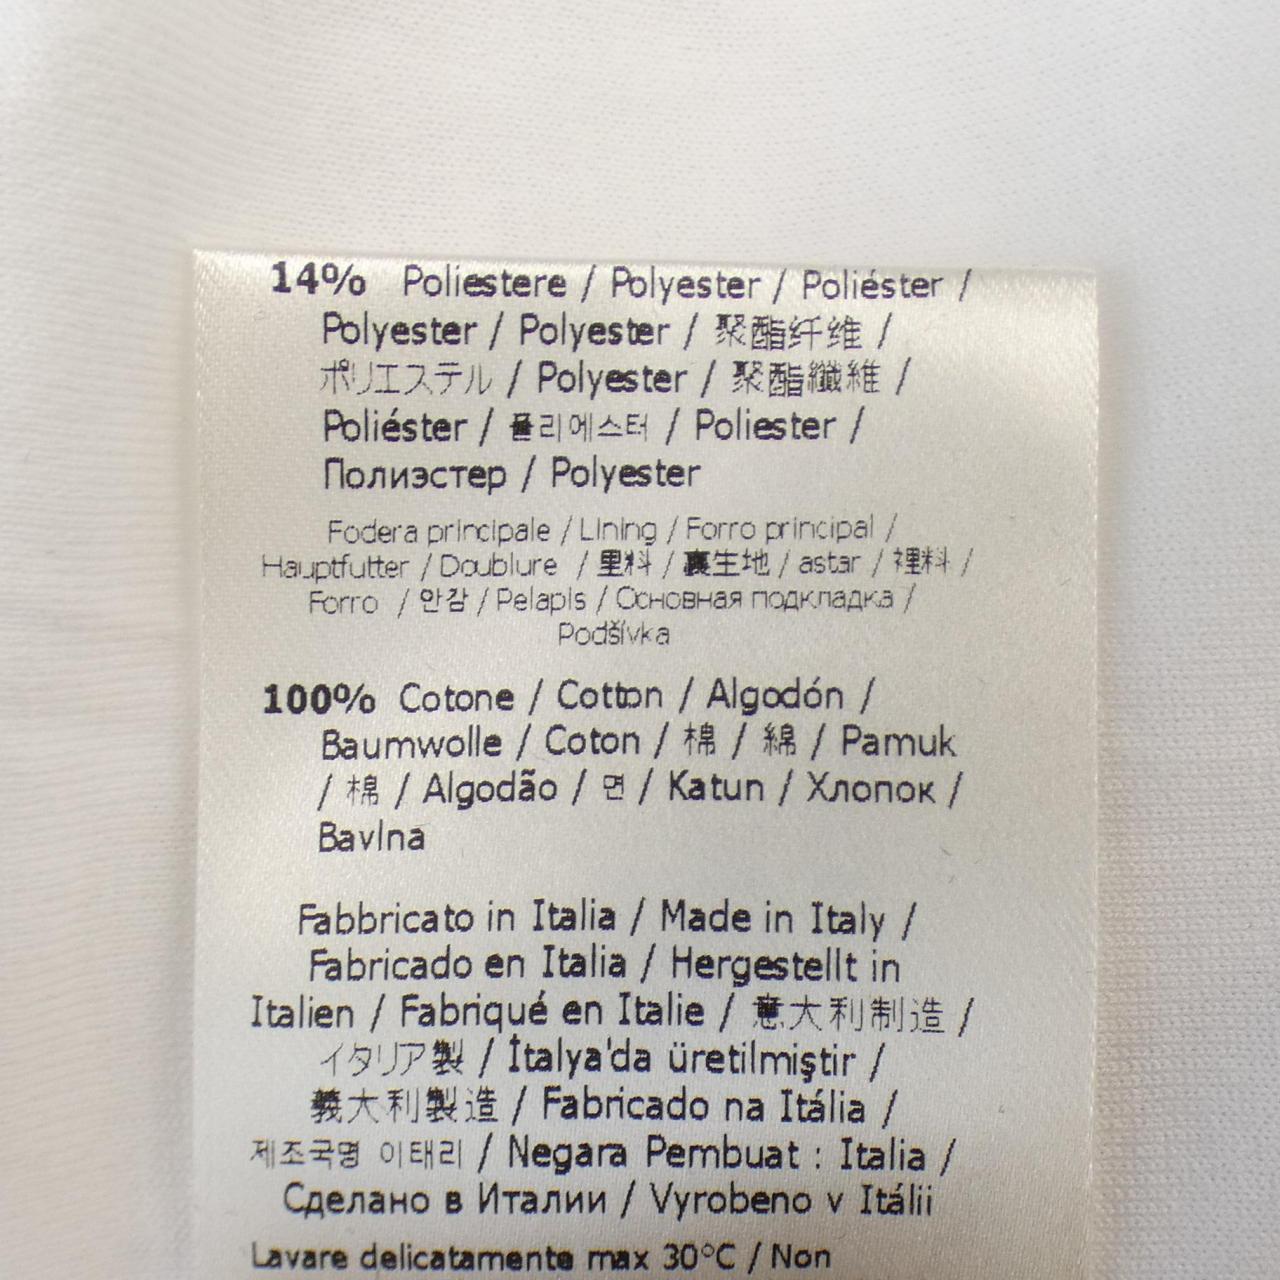 14% Poliestere / Polyester / Poliéster /
Polyester / Polyester / 聚酯纤维 /
ポリエステル / Polyester / 聚酯纖維 /
Poliéster / 폴리에스터 / Poliester /
Полиэстер / Polyester
Fodera principale / Lining / Forro principal /
Hauptfutter / Doublure / 里料 / 裏生地 / astar / 裡料 /
Forro / 안감 / Pelapis / Основная подкладка /
Podšívka
100% Cotone / Cotton / Algodón /
Baumwolle / Coton / 棉 / 綿 / Pamuk
/ 棉 / Algodão / 면 / Katun / Хлопок /
Bavlna
Fabbricato in Italia / Made in Italy /
Fabricado en Italia / Hergestellt in
Italien / Fabriqué en Italie / 意大利制造 /
イタリア製 / İtalya'da üretilmiştir /
義大利製造 / Fabricado na Itália /
제조국명 이태리 / Negara Pembuat : Italia /
Сделано в Италии / Vyrobeno v Itálii
Lavare delicatamente max 30°C / Non